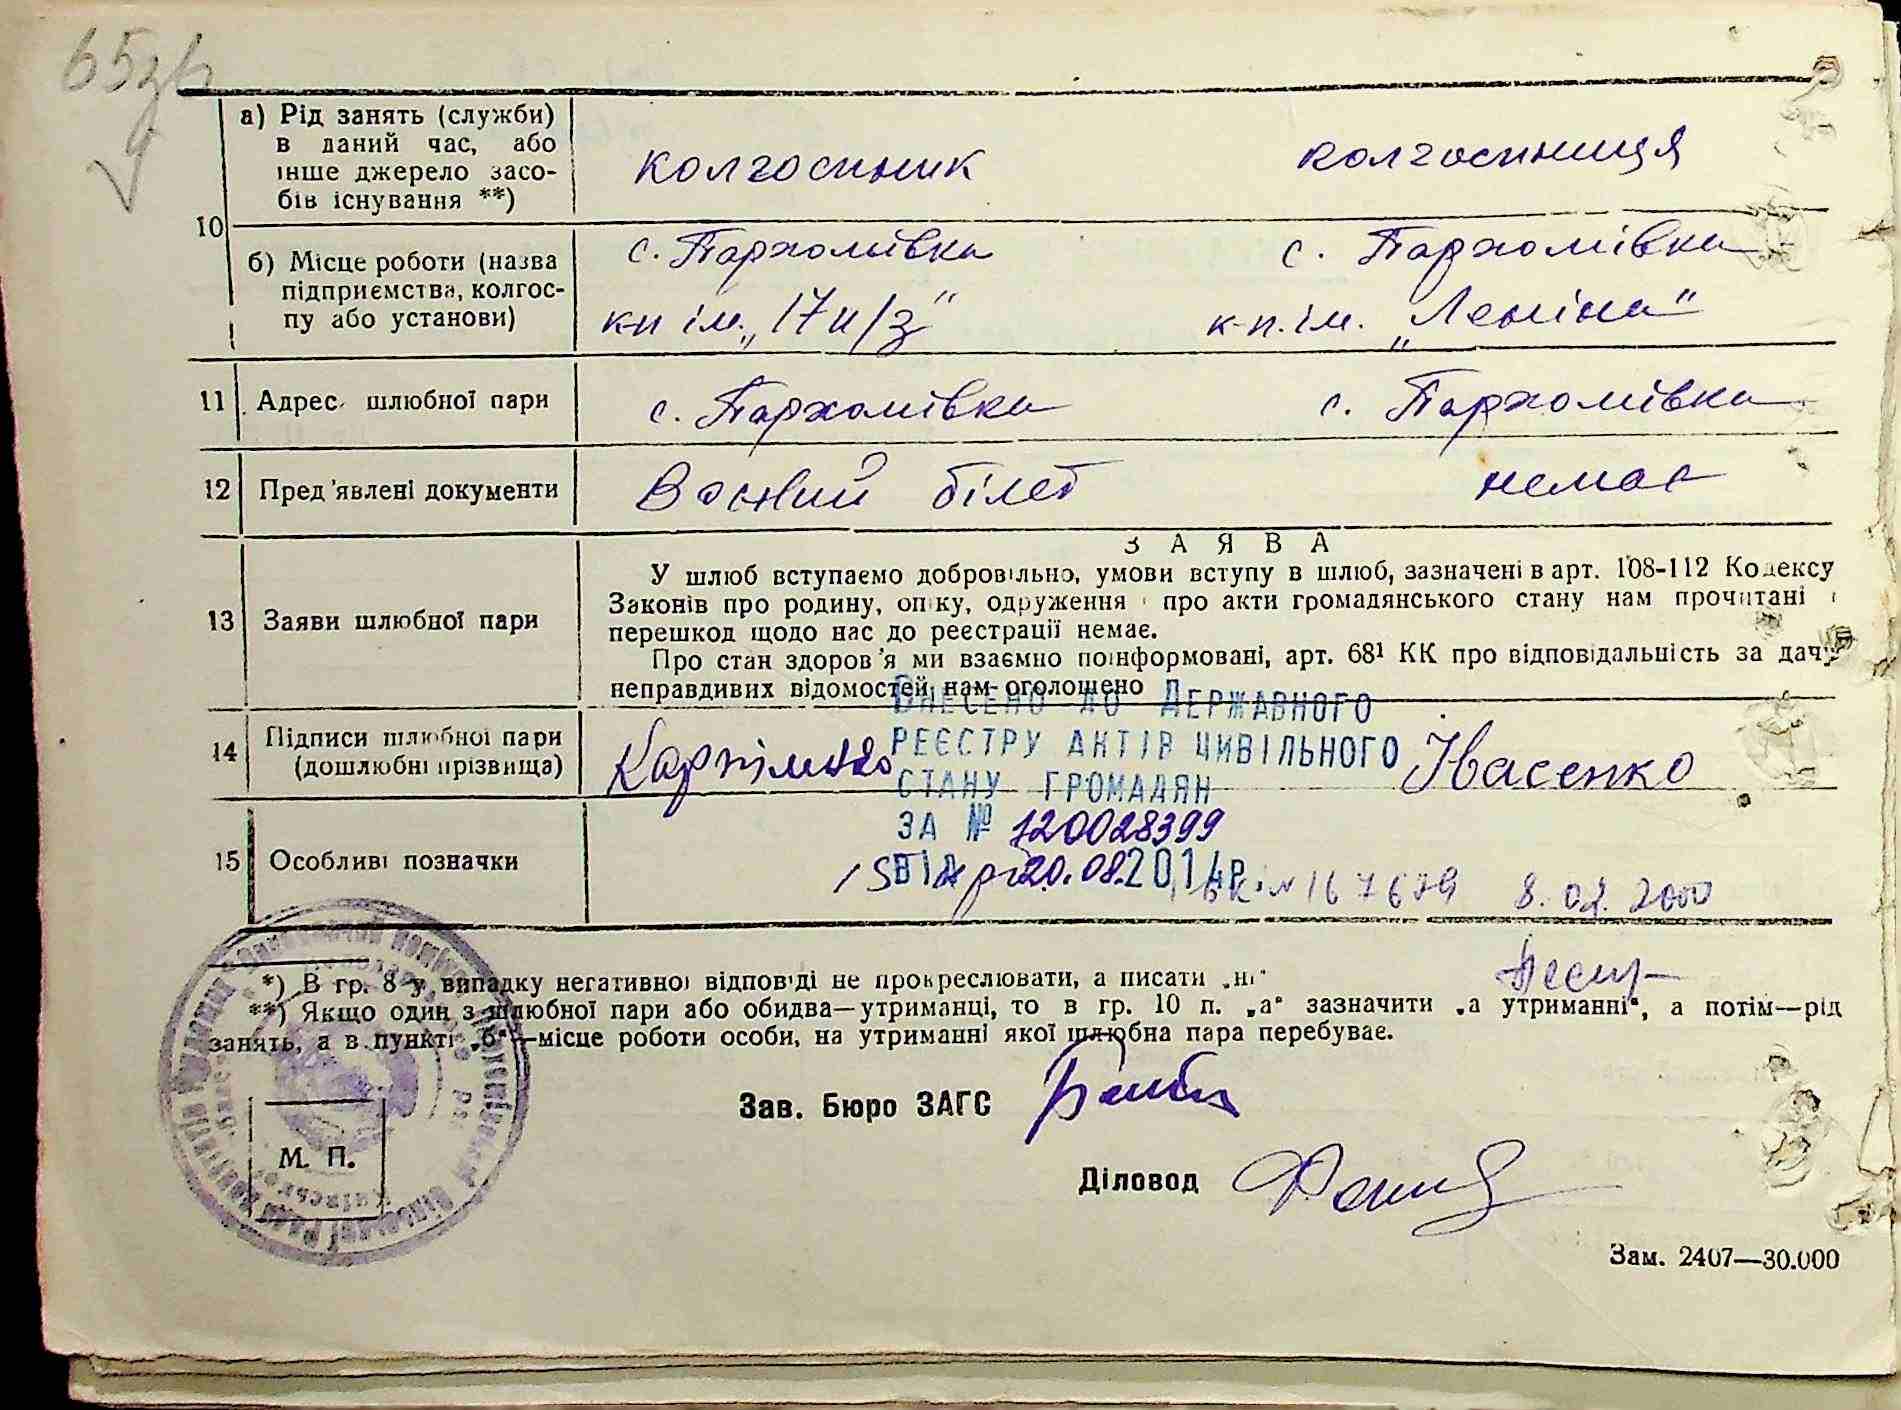 65зр
а) Рід занять (служби)
в даний час, або
інше джерело засо-
бів існування **)
колгоспник
колгоспниця
10
б) Місце роботи (назва
підприємства, колгос-
пу або установи)
с. Пархомівка
к-п ім. „17 п/з"
с. Пархомівка
к-п. ім. „Леніна"
11 Адрес шлюбної пари
с. Пархомівка
с. Пархомівка
12 Пред'явлені документи
Воєний білет
немає
ЗАЯВА
13 Заяви шлюбної пари
У шлюб вступаємо добровільно, умови вступу в шлюб, зазначені в арт. 108-112 Кодексу
Законів про родину, опіку, одруження і про акти громадянського стану нам прочитані і
перешкод щодо нас до реєстрації немає.
Про стан здоров'я ми взаємно поінформовані, арт. 68¹ КК про відповідальність за дачу
неправдивих відомостей нам оголошено
14 Підписи шлюбної пари
(дошлюбні прізвища)
Івасенко
ВНЕСЕНО ДО ДЕРЖАВНОГО
РЕЄСТРУ АКТІВ ЦИВІЛЬНОГО
СТАНУ ГРОМАДЯН
ЗА № 120028399
ВІД 20.08.2014р.
15 Особливі позначки
№ 167679 8.02.2000
*) В гр. 8 у випадку негативної відповіді не прокреслювати, а писати „ні"
**) Якщо один з шлюбної пари або обидва—утриманці, то в гр. 10 п. „а" зазначити „а утриманні", а потім—рід
занять, а в пункті „б"—місце роботи особи, на утриманні якої шлюбна пара перебуває.
Зав. Бюро ЗАГС
М. П.
Діловод
Зам. 2407—30.000